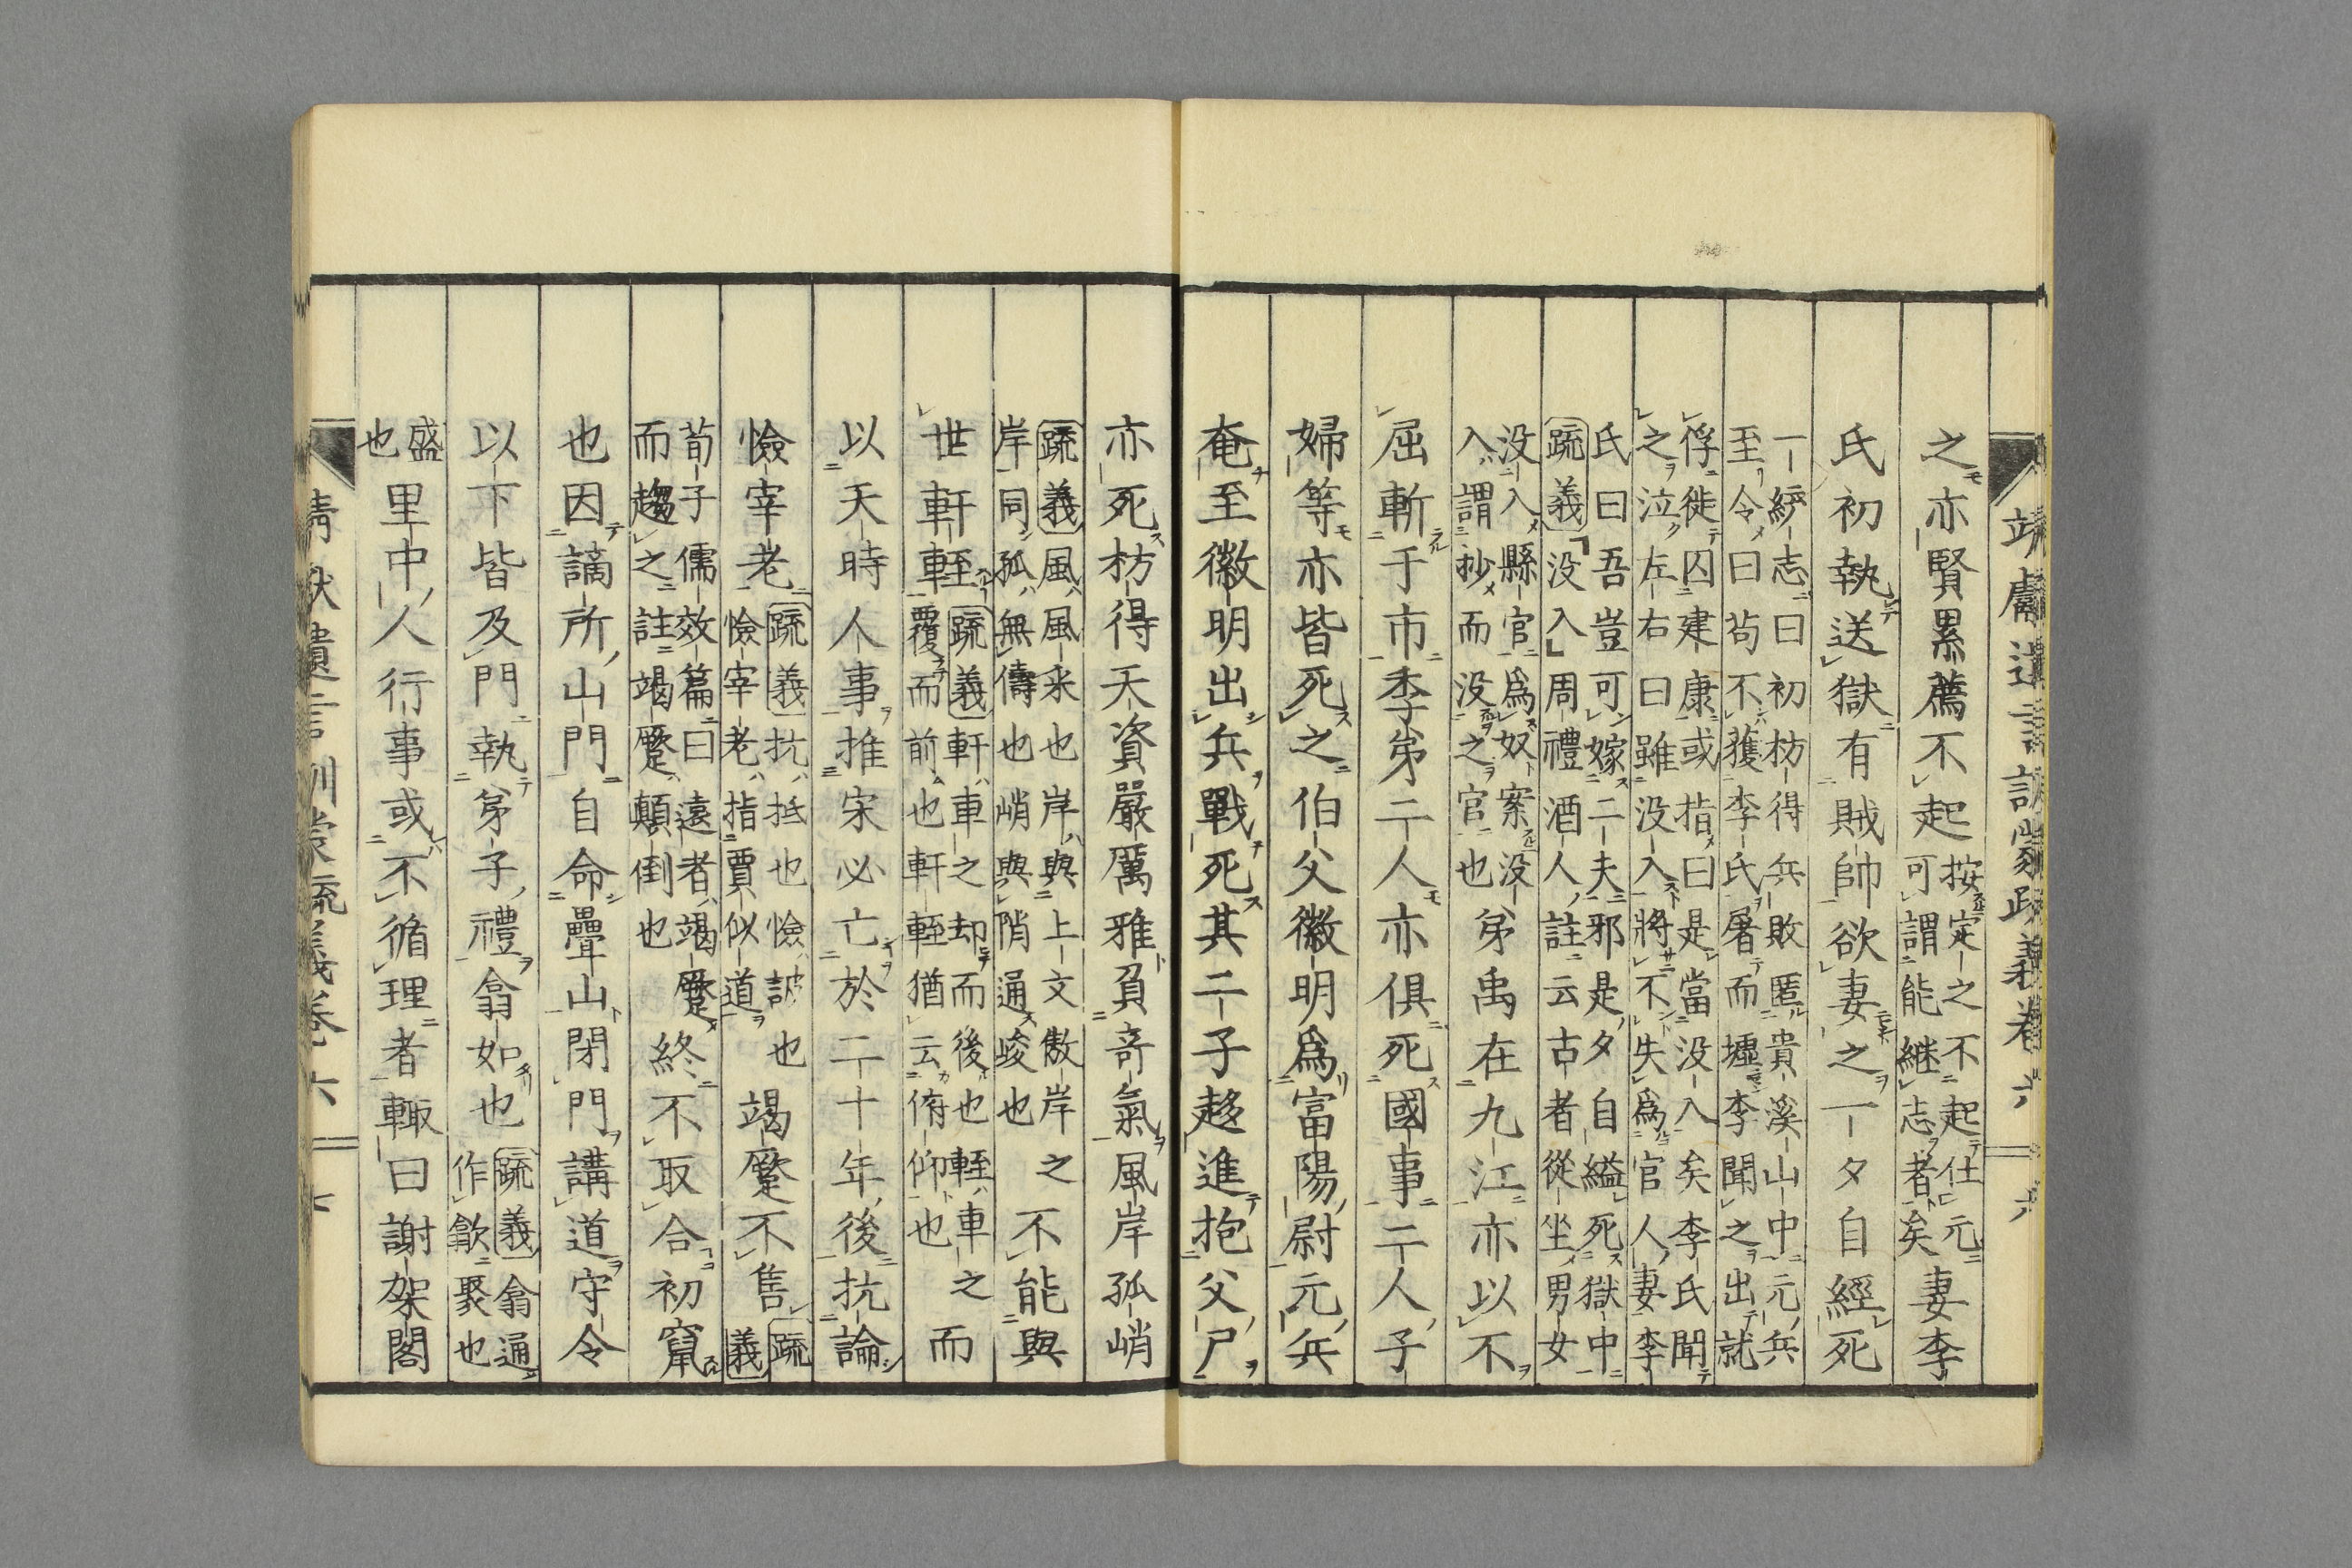 靖獻遺言訓蒙疏義卷六 六
之亦賢累薦不起按定之不起仕元可謂能継志者矣妻李
氏初執送獄有賊帥欲妻之一夕自經死
一綍志曰初枋得兵敗匿貴溪山中元兵
至令曰茍不獲李氏屠而墟李聞之出就
俘徙囚建康或指曰是當没入矣李氏聞
之泣左右曰雖没入將不失爲官人妻李
氏曰吾豈可嫁二夫邪是夕自縊死獄中
疏義没入周禮酒人註云古者從坐男女
没入縣官爲奴案没
入謂抄而没之官也弟禹在九江亦以不
屈斬于市季弟二人亦俱死國事二人子
婦等亦皆死之伯父徽明爲富陽尉元兵
奄至徽明出兵戰死其二子趍進抱父尸
亦死枋得天資嚴厲雅負竒氣風岸孤峭
疏義風風采也岸與上文傲岸之
岸同孤無儔也峭與陗通峻也不能與
世軒輊疏義軒車之却而後也輊車之
覆而前也軒輊猶云俯仰也而
以天時人事推宋必亡於二十年後抗論
憸宰老疏義抗抵也憸詖也
憸宰老指賈似道竭蹷不售疏義
荀子儒效篇曰遠者竭蹷
而趨之註竭蹷顛倒也終不取合初竄
也因謫所山門自命疊山閉門講道守令
以下皆及門執弟子禮翕如也疏義翕通
作歙聚也
盛也里中人行事或不循理者輙曰謝架閣
靖獻遺言訓蒙疏義卷六 七